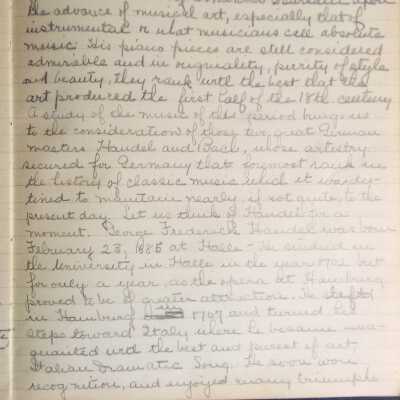 upon
the advance of musical art, especially that of
instrumental or what musicians call absolute
music. His piano pieces are still considered
admirable and in originality, purity of style
and beauty, they rank with the best that the
art produced the first half of the 18th century
A study of the music of this period brings us
to the consideration of those two, great German
masters Handel and Bach, whose artistry
secured for Germany that foremost rank in
the history of classic music which it was des-
tined to maintain nearly, if not quite, to the
present day. Let us think of Handel for a
moment. George Frederick Handel was born
February 23, 1685 at Halle - He studied in
the University in Halle in the year 1702 but
for only a year, as the opera at Hamburg
proved to be a greater attraction. He
in Hamburg 1707 and turned his
steps toward Italy where he became
quainted with the best and purest of art
Italian Dramatic Song. He soon won
recognition, and enjoyed many triumphs